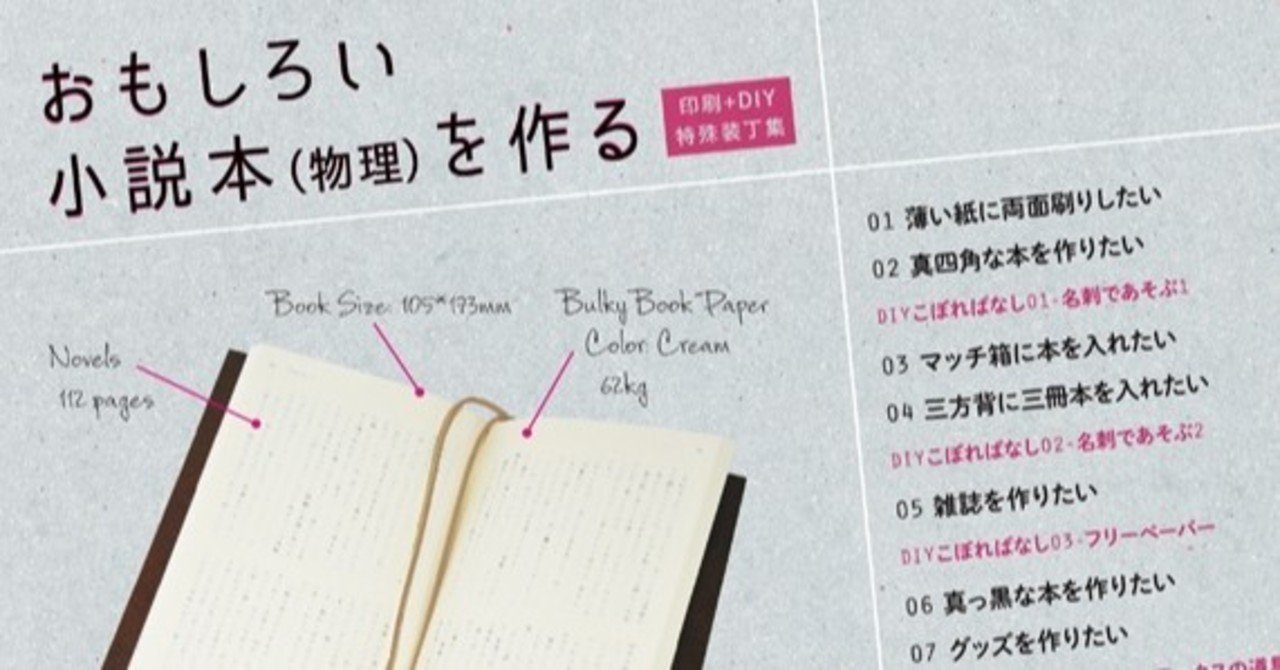 おもしろい
小説本(物理)を作る
印刷+DIY
特殊装丁集
Book Size: 105*173mm
Bulky Book Paper
Color: Cream
62kg
Novels
112 pages
01 薄い紙に両面刷りしたい
02 真四角な本を作りたい
DIYこぼればなし01-名刺であそぶ1
03 マッチ箱に本を入れたい
04 三方背に三冊本を入れたい
DIYこぼればなし02-名刺であそぶ2
05 雑誌を作りたい
DIYこぼればなし03-フリーペーパー
06 真っ黒な本を作りたい
07 グッズを作りたい